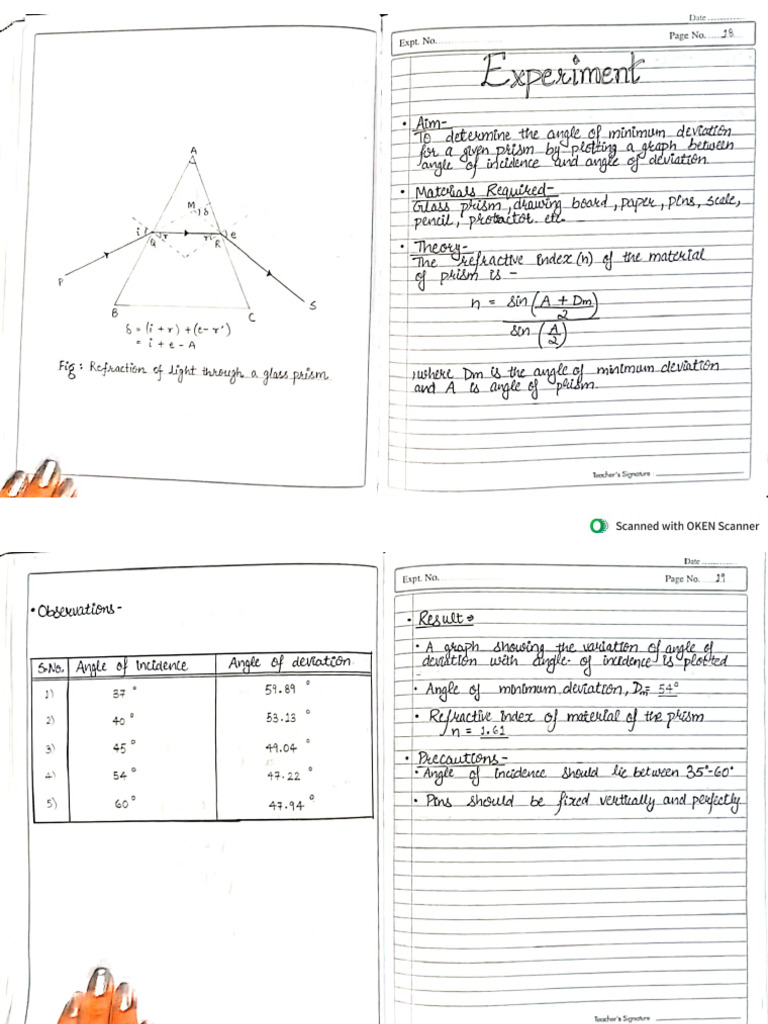 A
M
δ
i
r
r'
e
Q
R
P
S
B
C
δ = (i + r) + (e - r')
= i + e - A
Fig : Refraction of light through a glass prism
Date ............
Expt. No. ....................
Page No. ..... 28
Experiment
• Aim-
To determine the angle of minimum deviation
for a given prism by plotting a graph between
angle of incidence and angle of deviation.
• Materials Required-
Glass prism, drawing board, paper, pins, scale,
pencil, protactor etc.
• Theory-
The refractive index (n) of the material
of prism is -
n = sin (A + Dm)
2
sin (A)
2
, where Dm is the angle of minimum deviation
and A is angle of prism.
Teacher's Signature : ____________________
Scanned with OKEN Scanner
• Observations -
S.No. Angle of Incidence Angle of deviation
1) 37° 59.89°
2) 40° 53.13°
3) 45° 49.04°
4) 54° 47.22°
5) 60° 47.94°
Date ............
Expt. No. ....................
Page No. 29
• Result →
• A graph showing the variation of angle of
deviation with angle of incidence is plotted
• Angle of minimum deviation, Dm = 54°
• Refractive index of material of the prism
n = 1.61
• Precautions -
• Angle of incidence should lie between 35°-60°
• Pins should be fixed vertically and perfectly
Teacher's Signature : ____________________